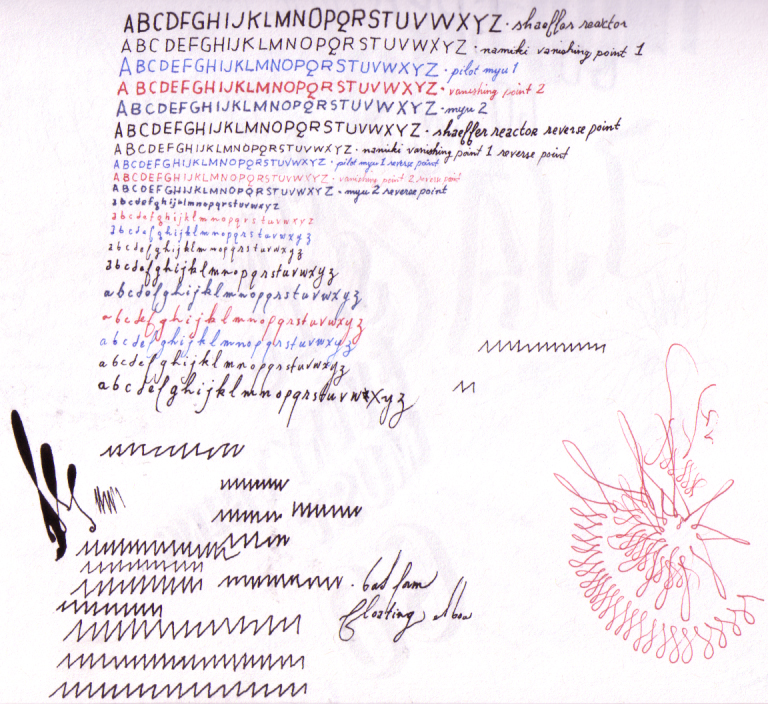 ABCDEFGHIJKLMNOPQRSTUVWXYZ · shaeffer reactor
ABCDEFGHIJKLMNOPQRSTUVWXYZ · namiki vanishing point 1
ABCDEFGHIJKLMNOPQRSTUVWXYZ · pilot myu 1
ABCDEFGHIJKLMNOPQRSTUVWXYZ · vanishing point 2
ABCDEFGHIJKLMNOPQRSTUVWXYZ · myu 2
ABCDEFGHIJKLMNOPQRSTUVWXYZ · shaeffer reactor reverse point
ABCDEFGHIJKLMNOPQRSTUVWXYZ · namiki vanishing point 1 reverse point
ABCDEFGHIJKLMNOPQRSTUVWXYZ · pilot myu 1 reverse point
ABCDEFGHIJKLMNOPQRSTUVWXYZ · vanishing point 2 reverse point
ABCDEFGHIJKLMNOPQRSTUVWXYZ · myu 2 reverse point
abcdefghijklmnopqrstuvwxyz
abcdefghijklmnopqrstuvwxyz
abcdefghijklmnopqrstuvwxyz
abcdefghijklmnopqrstuvwxyz
abcdefghijklmnopqrstuvwxyz
abcdefghijklmnopqrstuvwxyz
abcdefghijklmnopqrstuvwxyz
abcdefghijklmnopqrstuvwxyz
abcdefghijklmnopqrstuvwxyz
abcdefghijklmnopqrstuvwxyz
floating elbow